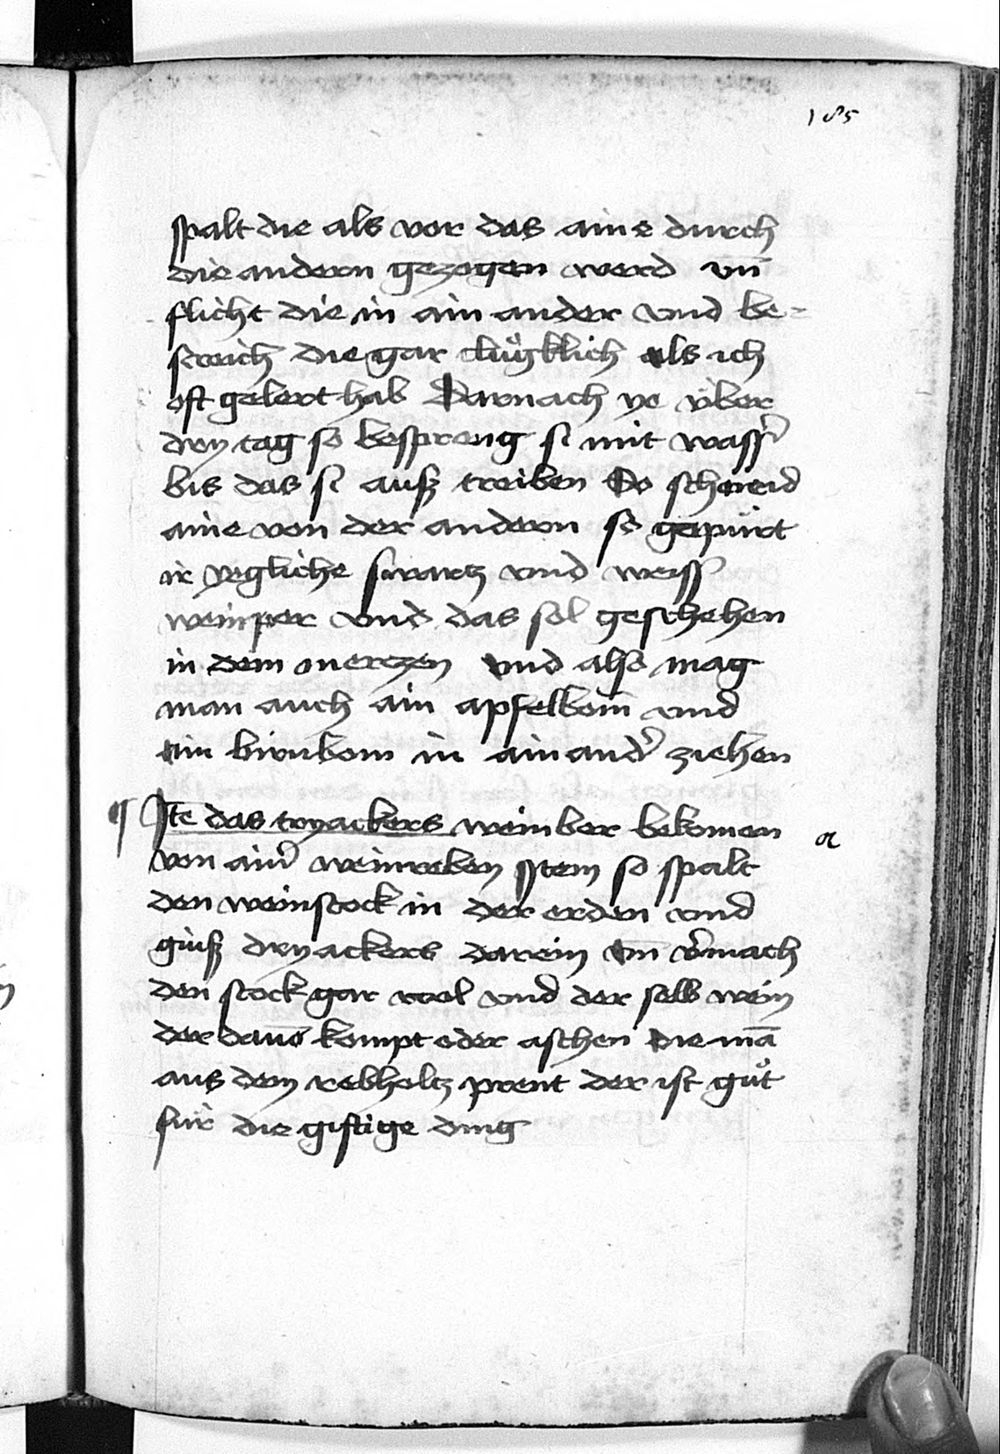 185
spalt die als vor das aine durch
die andern gezogen werd vn̄
flicht die in ain ander vnd be-
streich die gar clůgklich als ich
oft gelert hab Darnach ye v̈ber
dry tag so bespreng si mit wasser̉
bis das si ausz treiben So schneid
aine von der andern so gepürt
ir yegliche swartz vnd weiss
weinper vnd das sol geschehen
in dem merczen vnd also mag
man auch ain apfelbom̄ vnd
ain birnbom in ain and̉ ziehen
¶ Itē das tryackers weinber bekomen
a
von ain̉ weinreben Item so spalt
den weinstock in der erden vnd
giusz dryackers darein vn̄ v̉mach
den stock gar wol vnd der selb wein
der dauō kompt oder aschen die mā
aus dem rebholtz prent der ist gůt
für die giftige ding